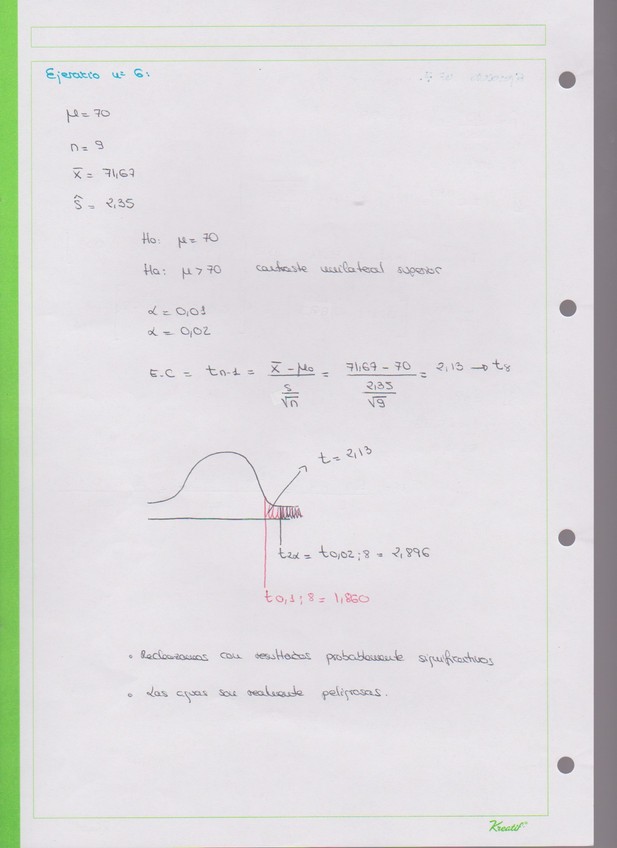 Ejercicio nº 6:
μ = 70
n = 9
x̄ = 71,67
ŝ = 2,35
Ho: μ = 70
Ha: μ > 70 contraste unilateral superior
α = 0,01
α = 0,02
E.C = tn-1 = (x̄ - μo) / (s/√n) = (71,67 - 70) / (2,35/√9) = 2,13 → t8
t = 2,13
t2α = t0,02;8 = 2,896
t0,1;8 = 1,860
• Rechazamos con resultados probablemente significativos
• Las aguas son realmente peligrosas.
Kreatif